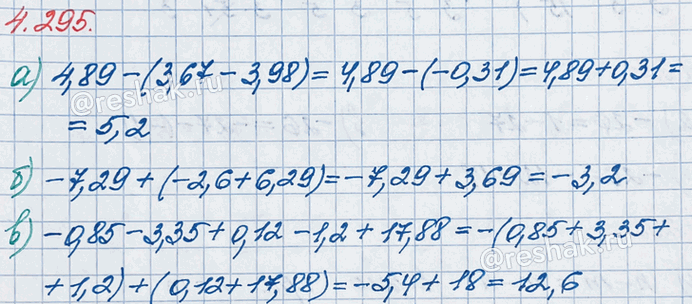 4.295.
а) 4,89 – (3,67 – 3,98) = 4,89 – (–0,31) = 4,89 + 0,31 =
= 5,2
б) –7,29 + (–2,6 + 6,29) = –7,29 + 3,69 = –3,2
в) –0,85 – 3,35 + 0,12 – 1,2 + 17,88 = –(0,85 + 3,35 +
+ 1,2) + (0,12 + 17,88) = –5,4 + 18 = 12,6
@reshak.ru
@reshak.ru